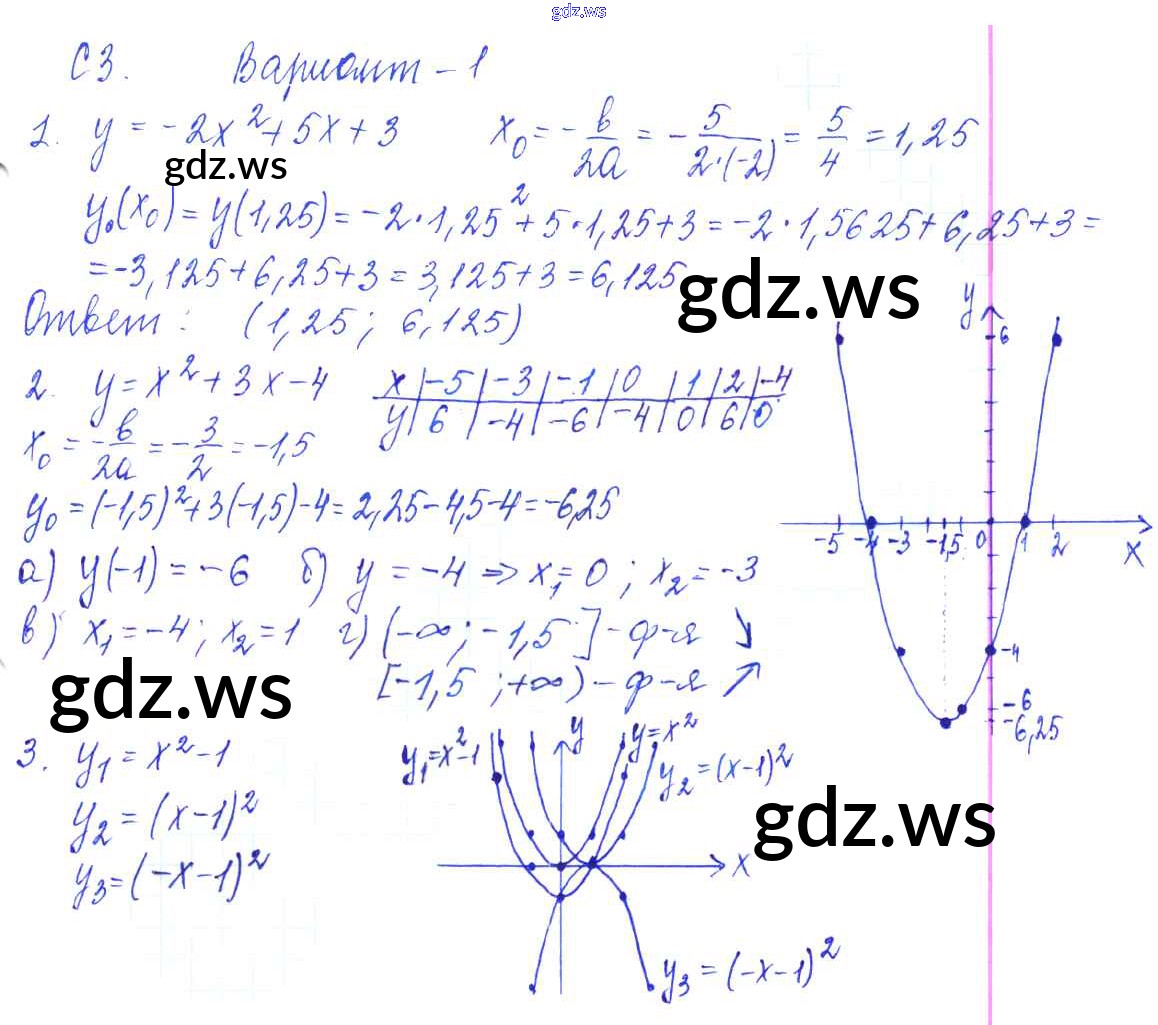 gdz.ws
С3. Вариант-1
1. y = -2x²+5x+3 x₀ = -в/2a = -5/(2·(-2)) = 5/4 = 1,25
gdz.ws
y₀(x₀) = y(1,25) = -2·1,25²+5·1,25+3 = -2·1,5625+6,25+3 =
= -3,125+6,25+3 = 3,125+3 = 6,125
gdz.ws
Ответ: (1,25; 6,125)
2. y = x²+3x-4
x | -5 | -3 | -1 | 0 | 1 | 2 | -4
y | 6 | -4 | -6 | -4 | 0 | 6 | 0
x₀ = -в/2a = -3/2 = -1,5
y₀ = (-1,5)²+3(-1,5)-4 = 2,25-4,5-4 = -6,25
а) y(-1) = -6 б) y = -4 ⇒ x₁ = 0; x₂ = -3
в) x₁ = -4; x₂ = 1 г) (-∞; -1,5] - ф-я ↘
[-1,5; +∞) - ф-я ↗
y
6
-5 -4 -3 -1,5 0 1 2
x
-4
-6
-6,25
gdz.ws
3. y₁ = x²-1
y₂ = (x-1)²
y₃ = (-x-1)²
y₁ = x²-1
y
y = x²
y₂ = (x-1)²
x
y₃ = (-x-1)²
gdz.ws